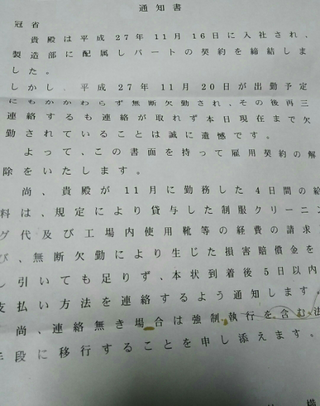 通知書
冠省
貴殿は平成27年11月16日に入社され、
製造部に配属しパートの契約を締結しま
した。
しかし、平成27年11月20日が出勤予定
にもかかわらず無断欠勤され、その後再三
連絡するも連絡が取れず本日現在まで欠
勤されていることは誠に遺憾です。
よって、この書面を持って雇用契約の解
除をいたします。
尚、貴殿が11月に勤務した4日間の給
料は、規定により貸与した制服クリーニン
グ代及び工場内使用靴等の経費の請求
び、無断欠勤により生じた損害賠償金を
し引いても足りず、本状到着後5日以内
支払い方法を連絡するよう通知します
尚、連絡無き場合は強制執行を含む法
手段に移行することを申し添えます。